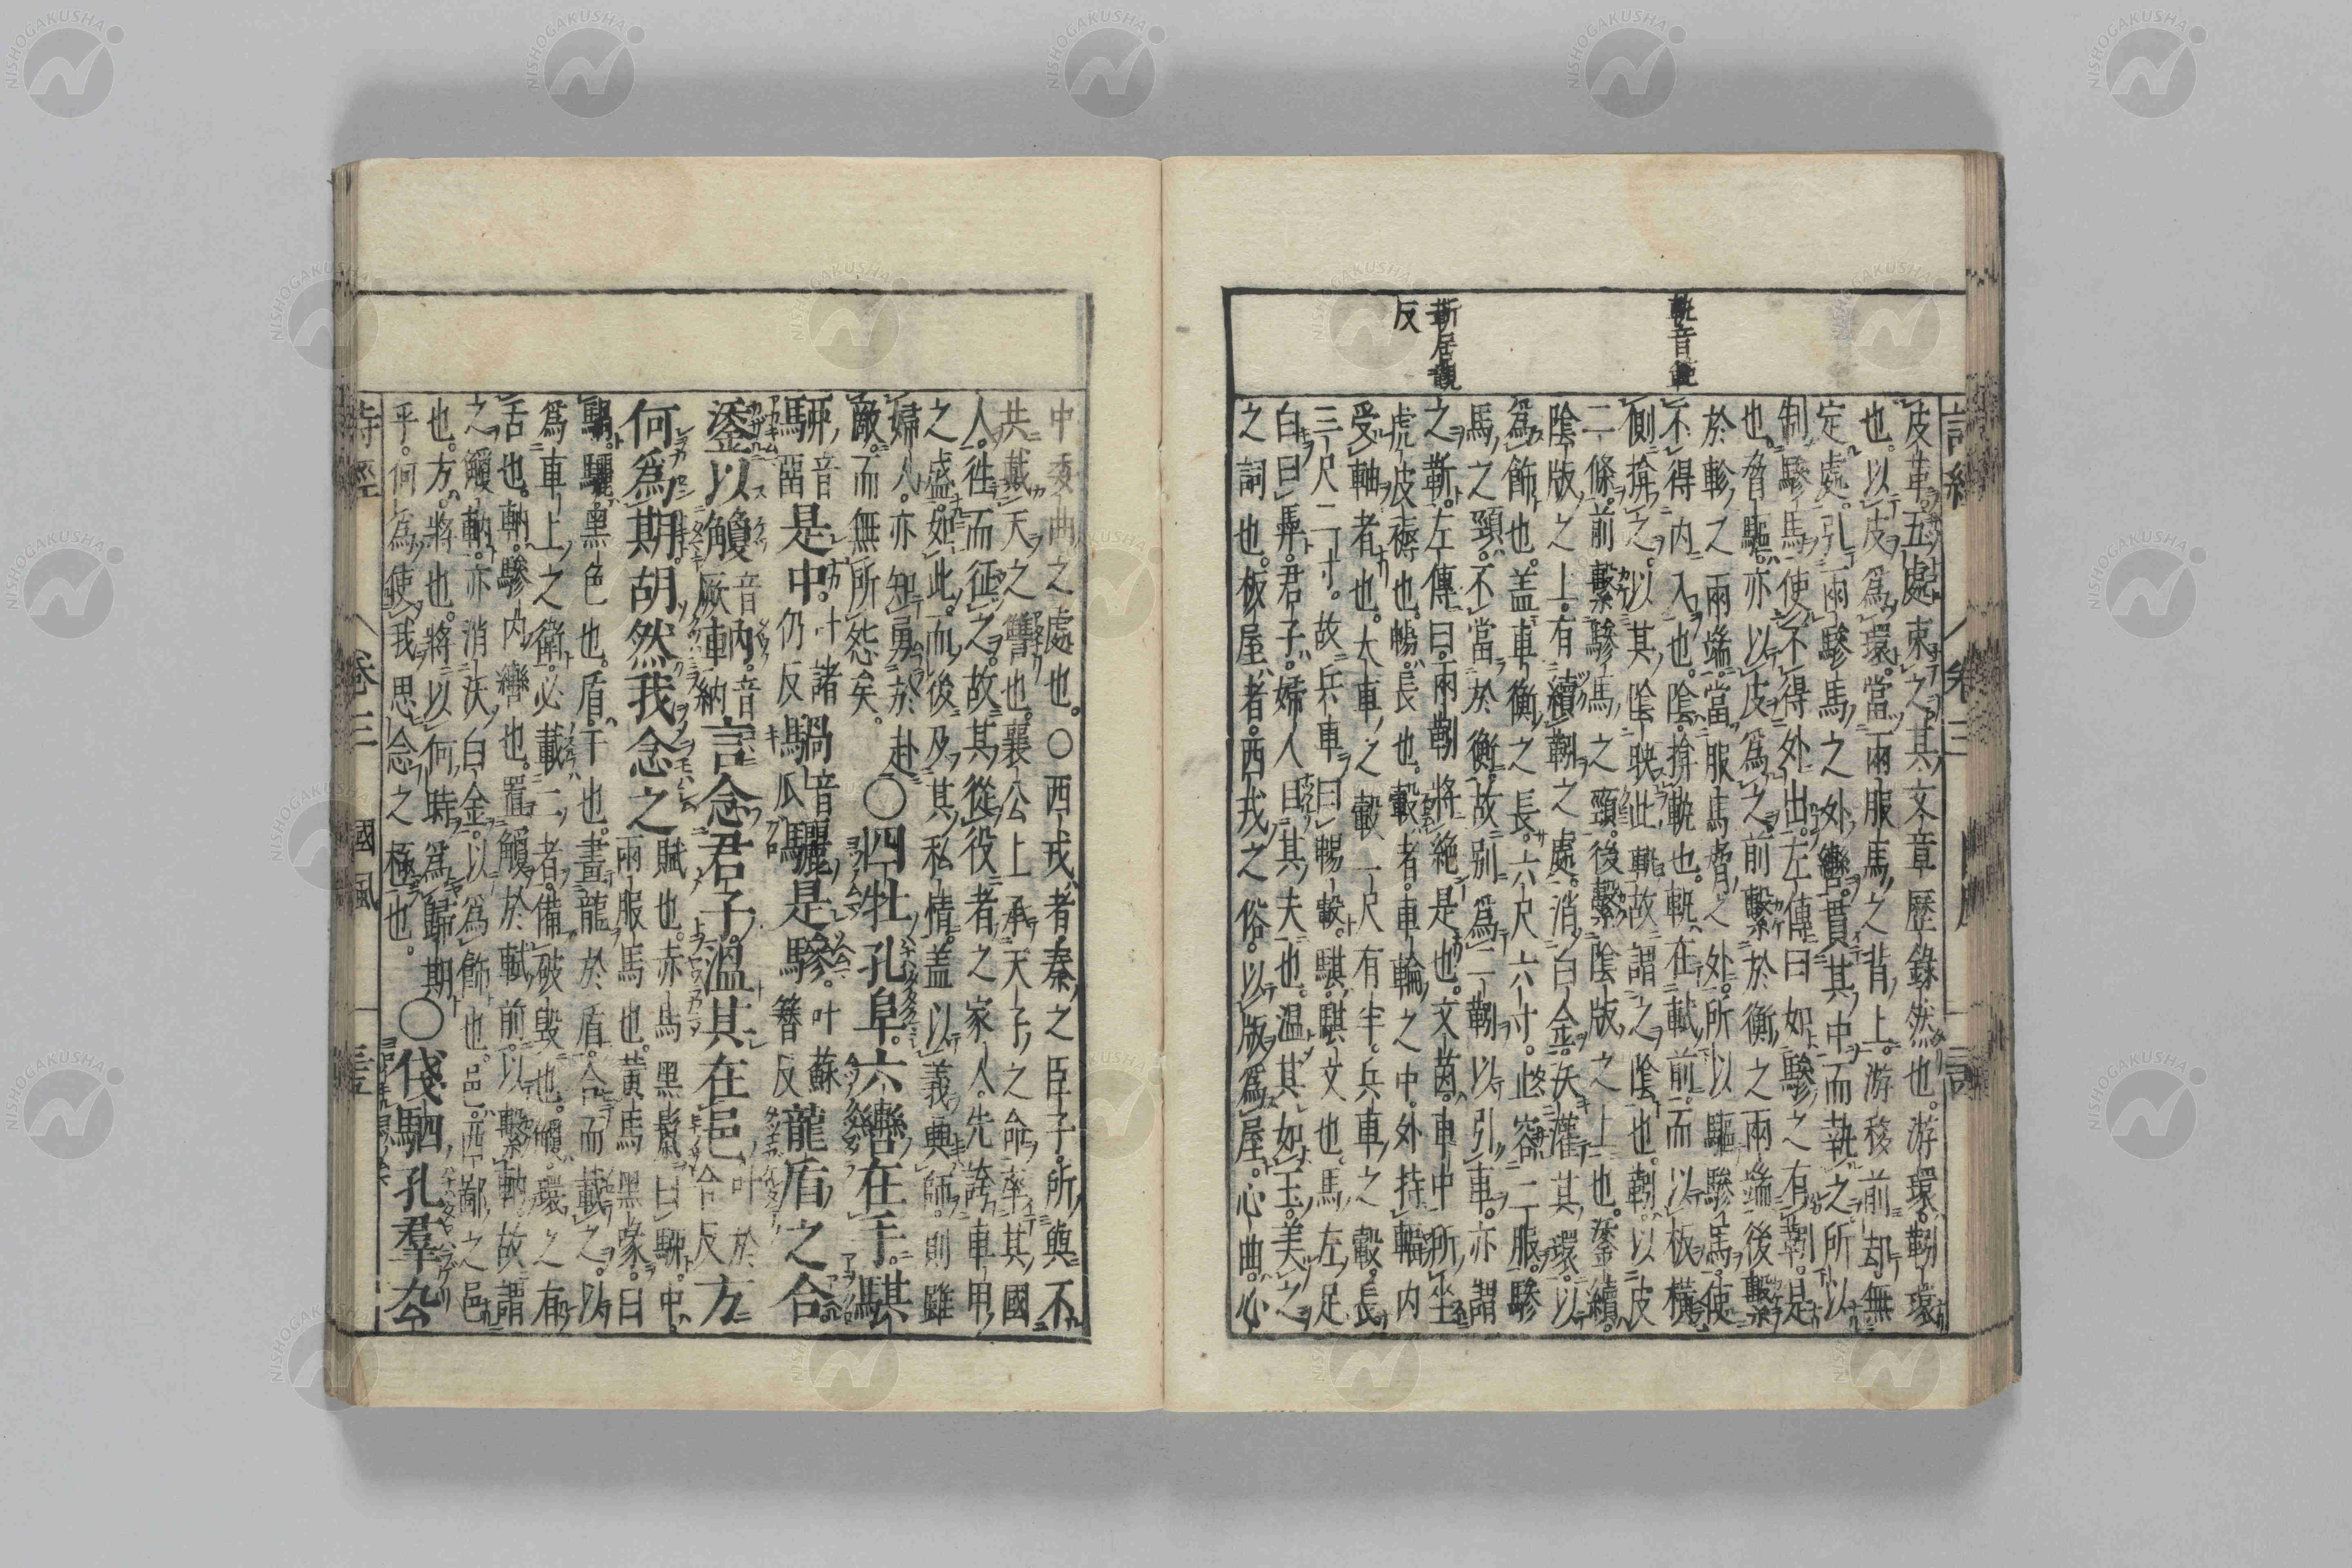 軓音範
靳居覲
反
皮革五處束之其文章歷錄然也。游環。靷環
也。以皮爲環。當兩服馬之背上。游移前却。無
定處。引兩驂馬之外轡。貫其中而執之。所以
制驂馬使不得外出。左傳曰如驂之有靷。是
也。脅驅。亦以皮爲之。前繫於衡之兩端。後繫
於軫之兩端。當服馬脅之外。所以驅驂馬。使
不得內入也。陰。揜軓也。軓在軾前。而以板橫
側揜之。以其陰映此軓。故謂之陰也。靷。以皮
二條。前繫驂馬之頸。後繫陰版之上也。鋈續。
陰版之上。有續靷之處。消白金。沃灌其環。以
爲飾也。蓋車衡之長。六尺六寸。止容二服。驂
馬之頸。不當於衡。故別爲二靷以引車。亦謂
之靳。左傳曰。兩靷將絕是也。文茵。車中所坐
虎皮褥也。暢。長也。轂者。車輪之中。外持輻內
受軸者也。大車之轂一尺有半。兵車之轂。長
三尺二寸。故兵車曰暢轂。騏。騏文也。馬左足
白曰馵。君子。婦人目其夫也。溫其如玉。美之
之詞也。板屋者。西戎之俗。以版爲屋。心曲。心
中委曲之處也。〇西戎者。秦之臣子。所與不
共戴天之讐也。襄公上承天子之命。率其國
人。往而征之。故其從役者之家人。先誇車甲
之盛。如此。而後及其私情。蓋以義興師。則雖
婦人。亦知勇於赴
敵。而無所怨矣。
〇四牡孔阜。六轡在手。騏
駵音
畱是中。叶諸
仍反騧音
瓜驪是驂。叶蘇
簪反龍盾之合
鋈以觼音
厥軜。音
納言念君子。溫其在邑叶於
合反方
何爲期。胡然我念之
賦也。赤馬黑鬣曰駵。中。
兩服馬也。黃馬黑喙。曰
騧。驪。黑色也。盾。干也。畫龍於盾。合而載之。以
爲車上之衛。必載二者。備破毀也。觼。環之有
舌也。軜。驂內轡也。置觼於軾前。以繫軜。故謂
之觼軜。亦消沃白金。以爲飾也。邑。西鄙之邑
也。方。將也。將以何時爲歸期
乎。何爲使我思念之極也。
〇俴駟孔羣厹
詩經 卷三 國風 一